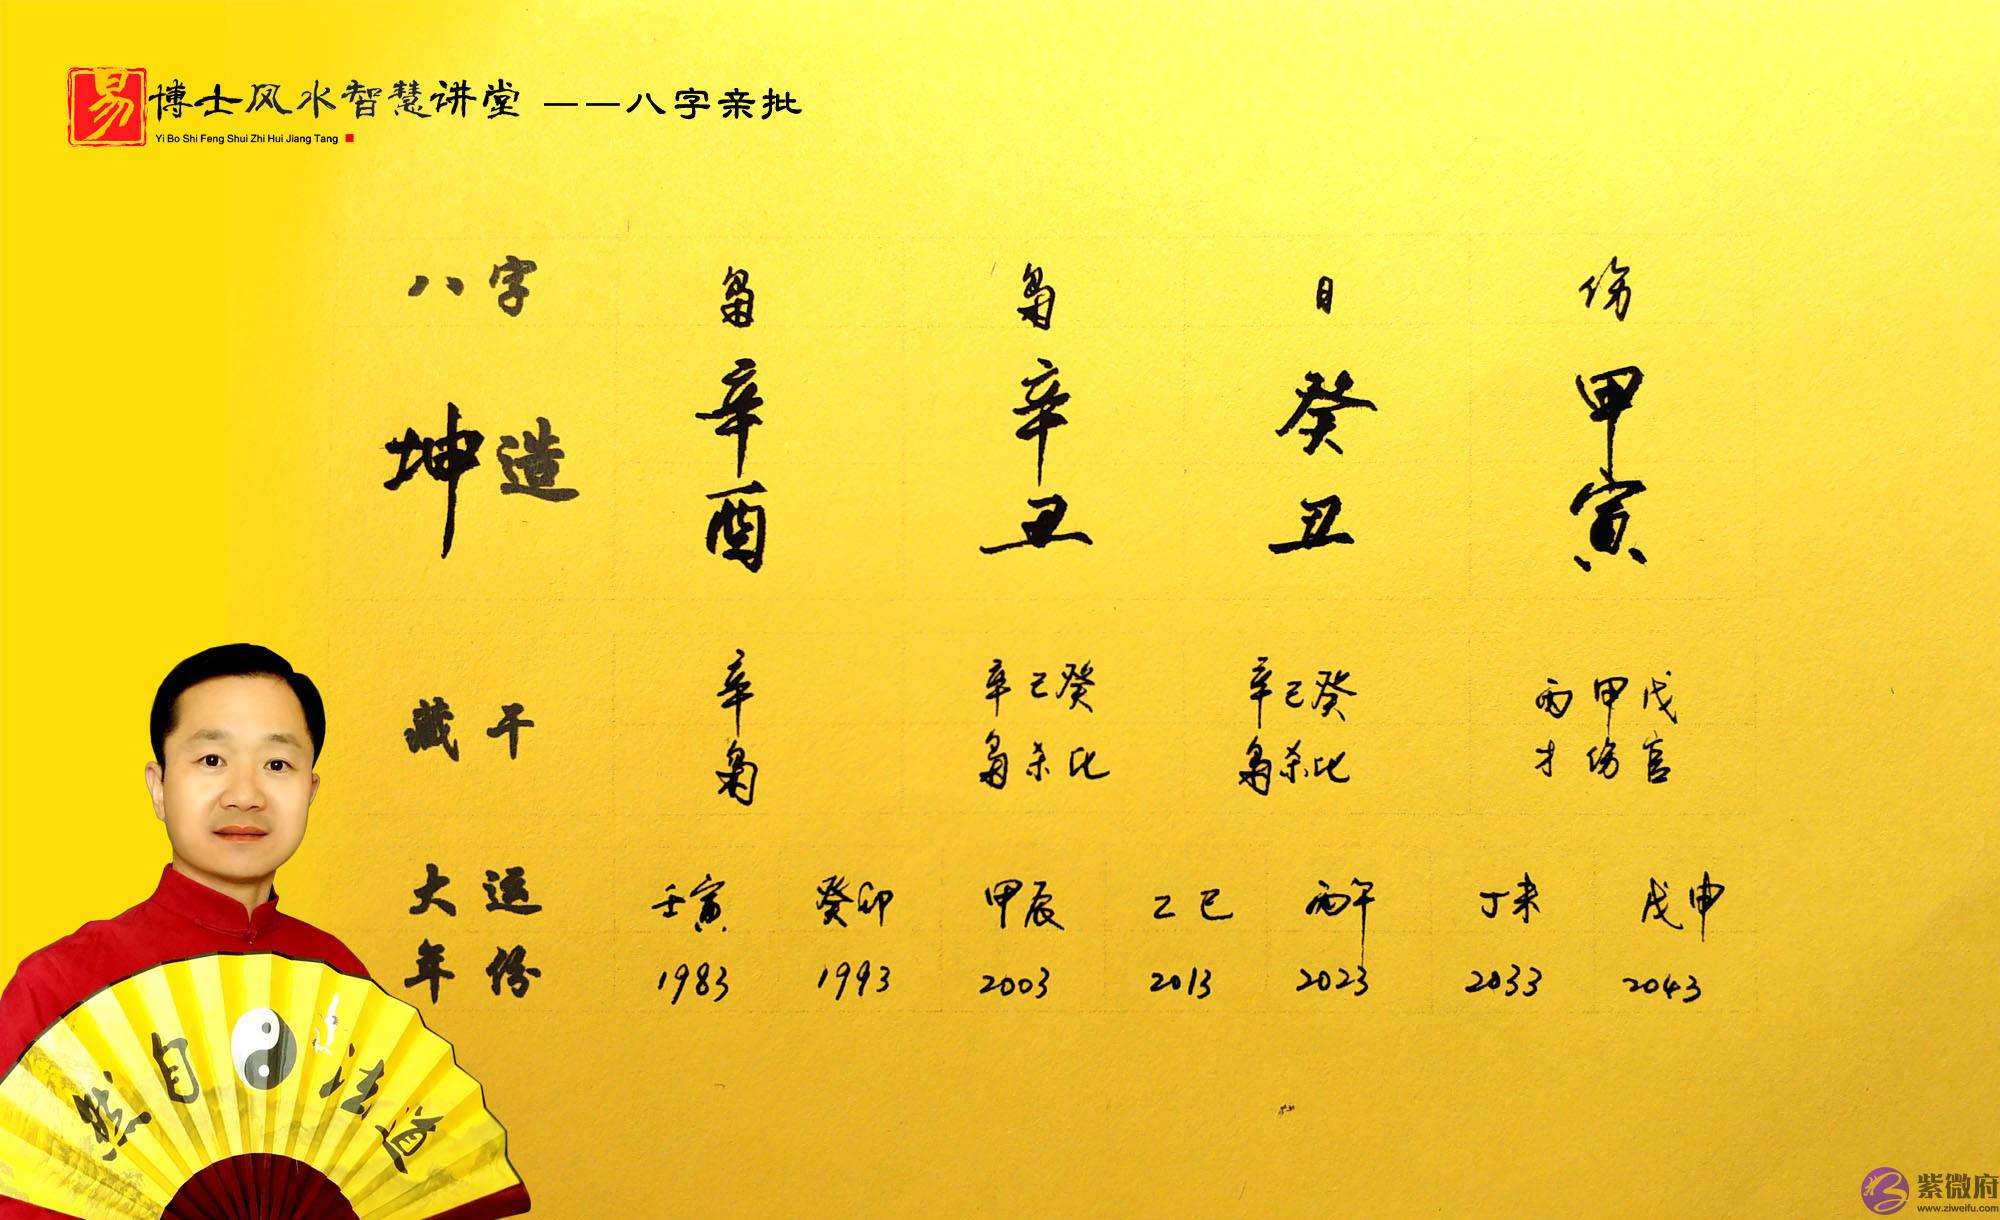 易博士风水智慧讲堂 ——八字亲批
Yi Bo Shi Feng Shui Zhi Hui Jiang Tang
八字 枭 枭 日 伤
坤造 辛酉 辛丑 癸丑 甲寅
藏干 辛 辛己癸 辛己癸 丙甲戊
枭 枭杀比 枭杀比 才伤官
大运 壬寅 癸卯 甲辰 乙巳 丙午 丁未 戊申
年份 1983 1993 2003 2013 2023 2033 2043
道法自然
紫微府
www.ziweifu.com